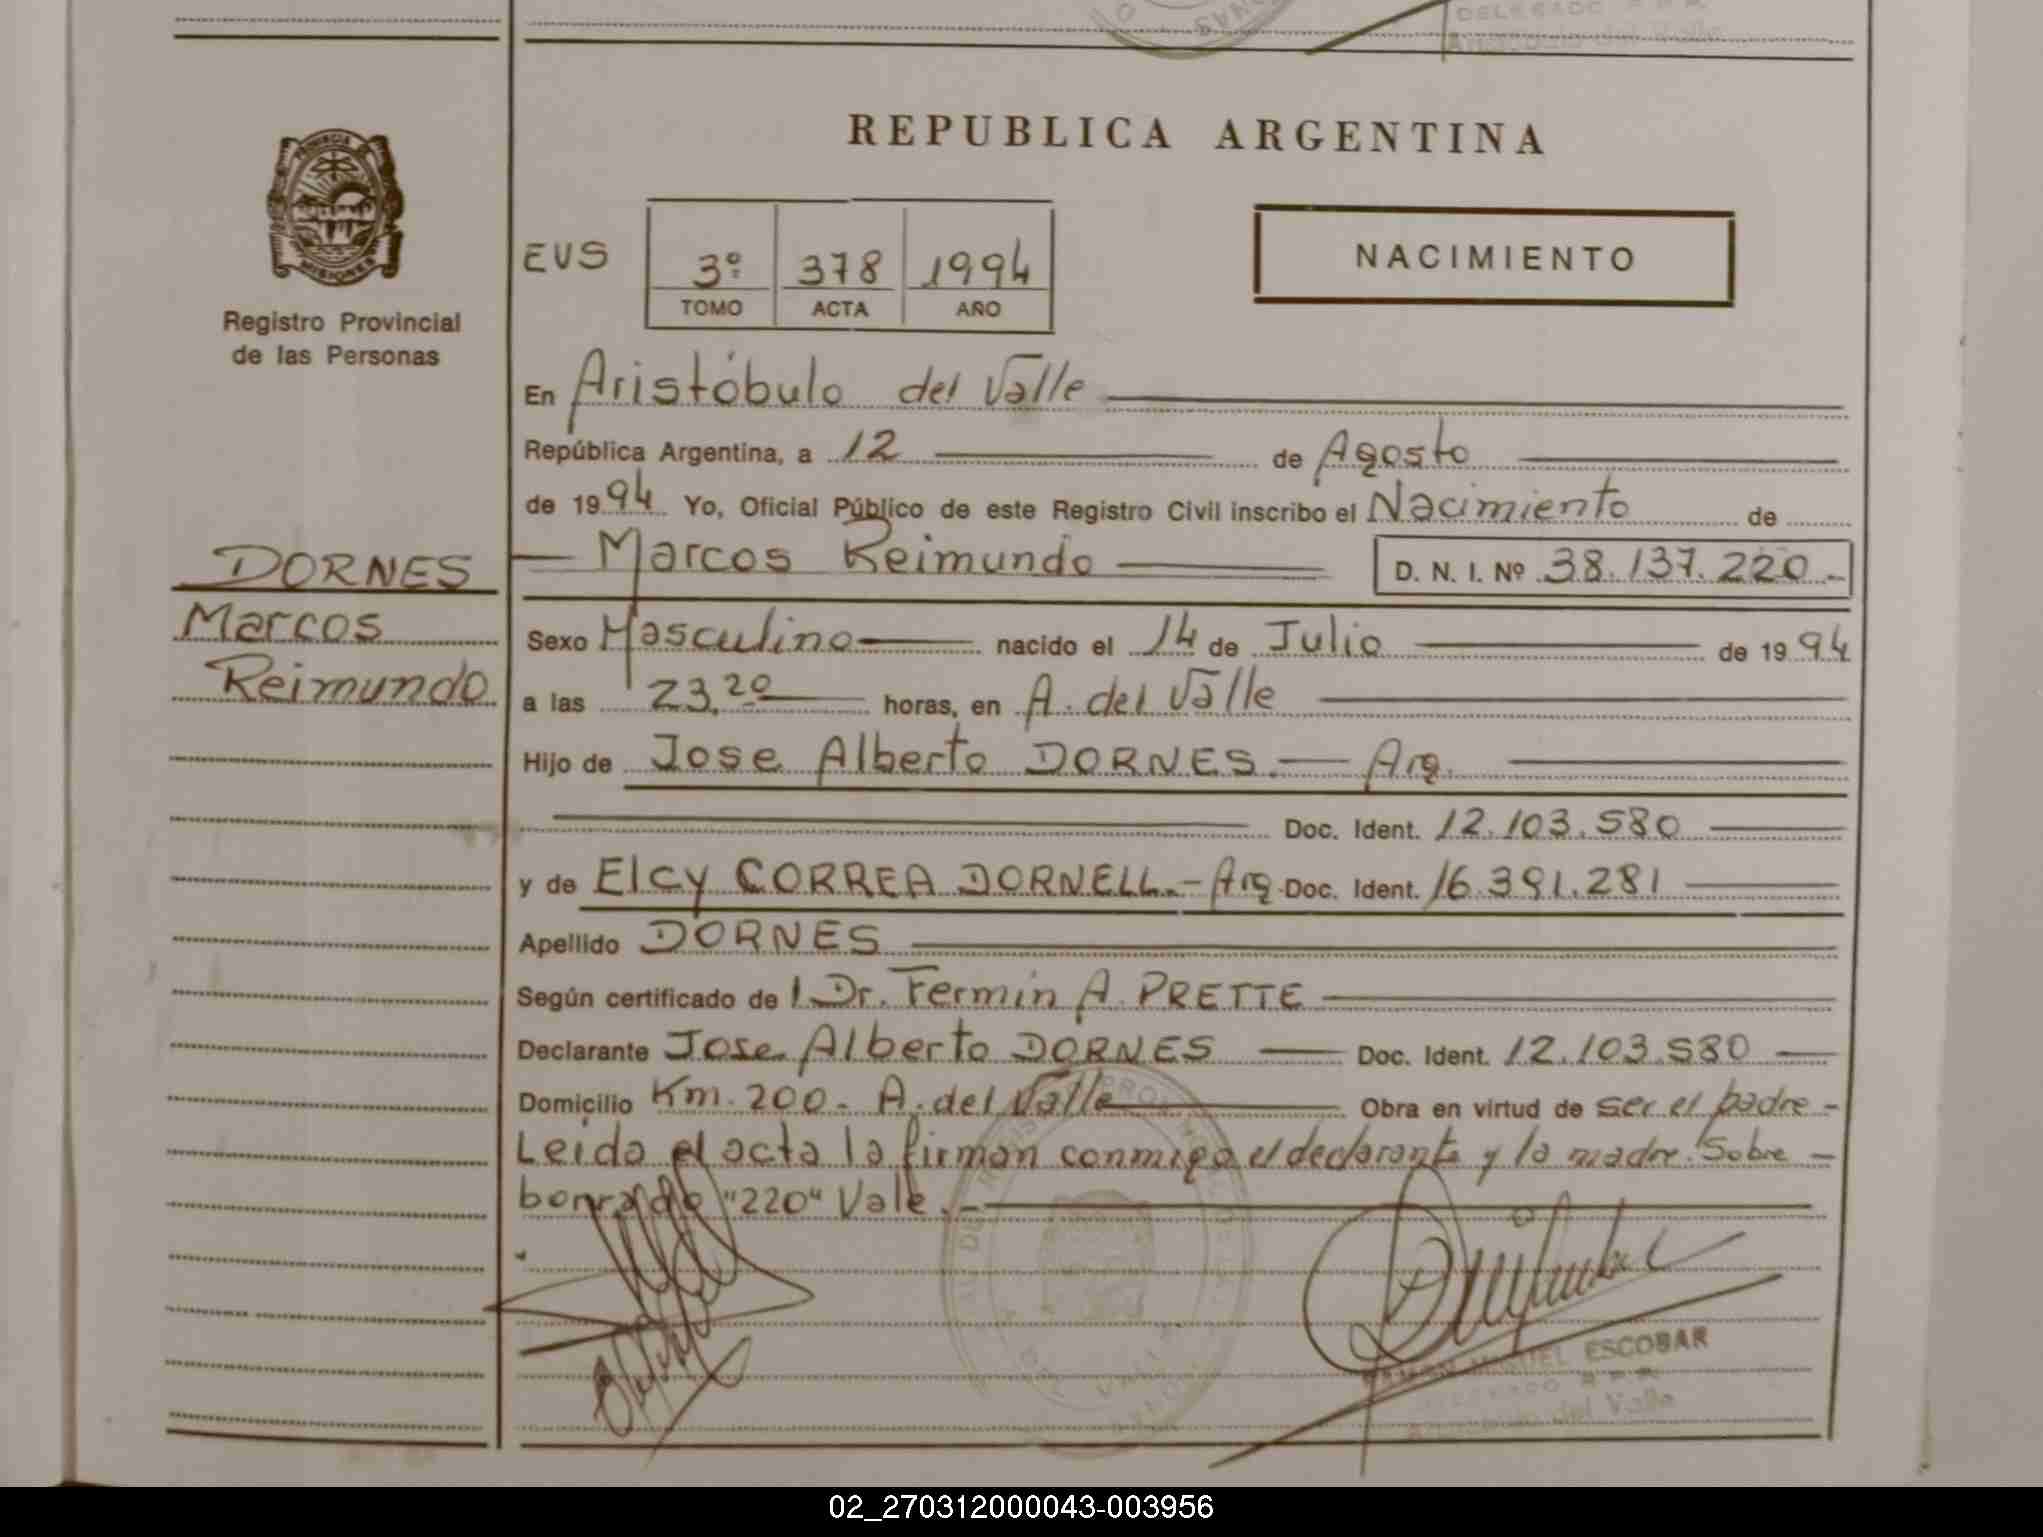 DELEGADO R.P.P.
Aristóbulo del Valle
PROVINCIA
MISIONES
Registro Provincial
de las Personas
REPUBLICA ARGENTINA
EVS
3º 378 1994
TOMO ACTA AÑO
NACIMIENTO
En Aristóbulo del Valle
República Argentina, a 12 de Agosto
de 1994 Yo, Oficial Público de este Registro Civil inscribo el Nacimiento de
Marcos Reimundo D. N. I. Nº 38.137.220.-
DORNES
Marcos
Reimundo
Sexo Masculino nacido el 14 de Julio de 1994
a las 23,20 horas, en A. del Valle
Hijo de Jose Alberto DORNES.— Arg.
Doc. Ident. 12.103.580
y de Elcy CORREA DORNELL.- Arg Doc. Ident. 16.391.281
Apellido DORNES
Según certificado de l Dr. Fermin A. PRETTE
Declarante Jose Alberto DORNES — Doc. Ident. 12.103.580 —
Domicilio Km. 200.- A. del Valle Obra en virtud de ser el padre -
Leida el acta la firman conmigo el declarante y la madre. Sobre -
borrado "220" Vale.-
MIGUEL ESCOBAR
del Valle
02_270312000043-003956